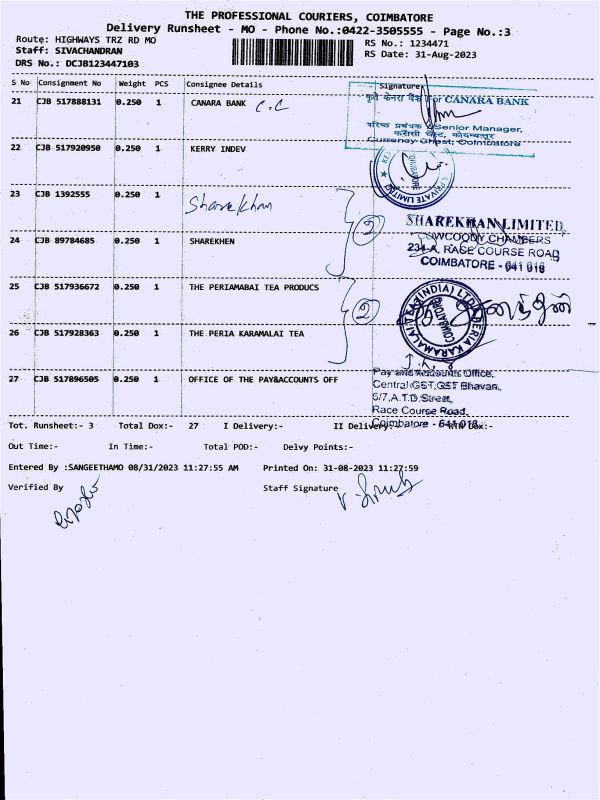 THE PROFESSIONAL COURIERS, COIMBATORE
Delivery Runsheet - MO - Phone No.:0422-3505555 - Page No.:3
Route: HIGHWAYS TRZ RD MO
RS No.: 1234471
Staff: SIVACHANDRAN
RS Date: 31-Aug-2023
DRS No.: DCJB123447103
S No Consignment No Weight PCS Consignee Details Signature
21 CJB 517888131 0.250 1 CANARA BANK C.C
कृते केनरा बैंक For CANARA BANK
वरिष्ठ प्रबंधक Senior Manager,
करेंसी चेस्ट, कोयम्बत्तूर
Currency Chest, Coimbatore
22 CJB 517920950 0.250 1 KERRY INDEV
PRIVATE LIMITED
COIMBATORE
23 CJB 1392555 0.250 1 Sharekhan
2
SHAREKHAN LIMITED
24 CJB 89784685 0.250 1 SHAREKHEN
CHAMBERS
234-A, RACE COURSE ROAD
COIMBATORE - 641 018
25 CJB 517936672 0.250 1 THE PERIAMABAI TEA PRODUCS
2
PERIA KARAMALAI TEA (INDIA) LTD
COIMBATORE
26 CJB 517928363 0.250 1 THE PERIA KARAMALAI TEA
27 CJB 517896505 0.250 1 OFFICE OF THE PAY&ACCOUNTS OFF
Pay and Accounts Office,
Central GST,GST Bhavan,
6/7,A.T.D.Street,
Race Course Road,
Coimbatore - 641018
Tot. Runsheet:- 3 Total Dox:- 27 I Delivery:- II Delivery:- RTN Dox:-
Out Time:- In Time:- Total POD:- Delvy Points:-
Entered By :SANGEETHAMO 08/31/2023 11:27:55 AM Printed On: 31-08-2023 11:27:59
Verified By Staff Signature